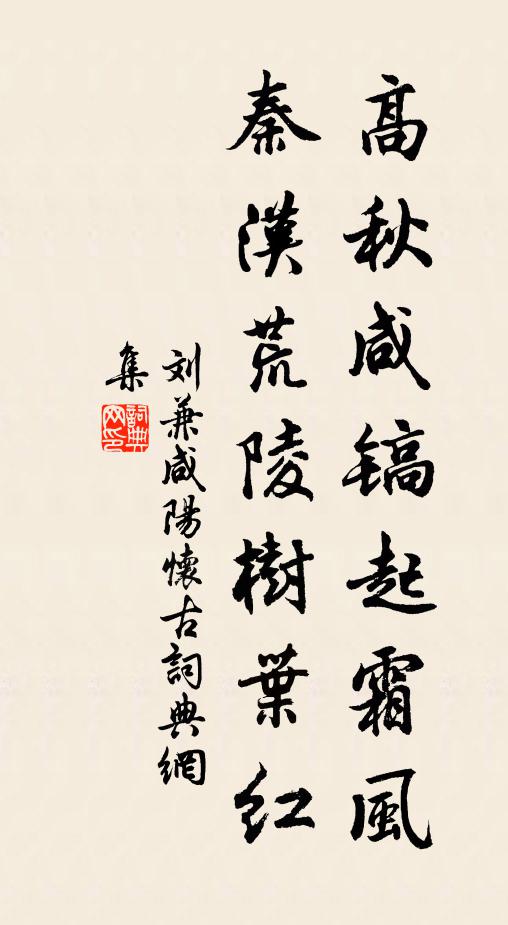 高秋咸镐起霜風
秦漢荒陵樹葉紅
刘兼咸陽懷古詞典網
集
詞典
网印